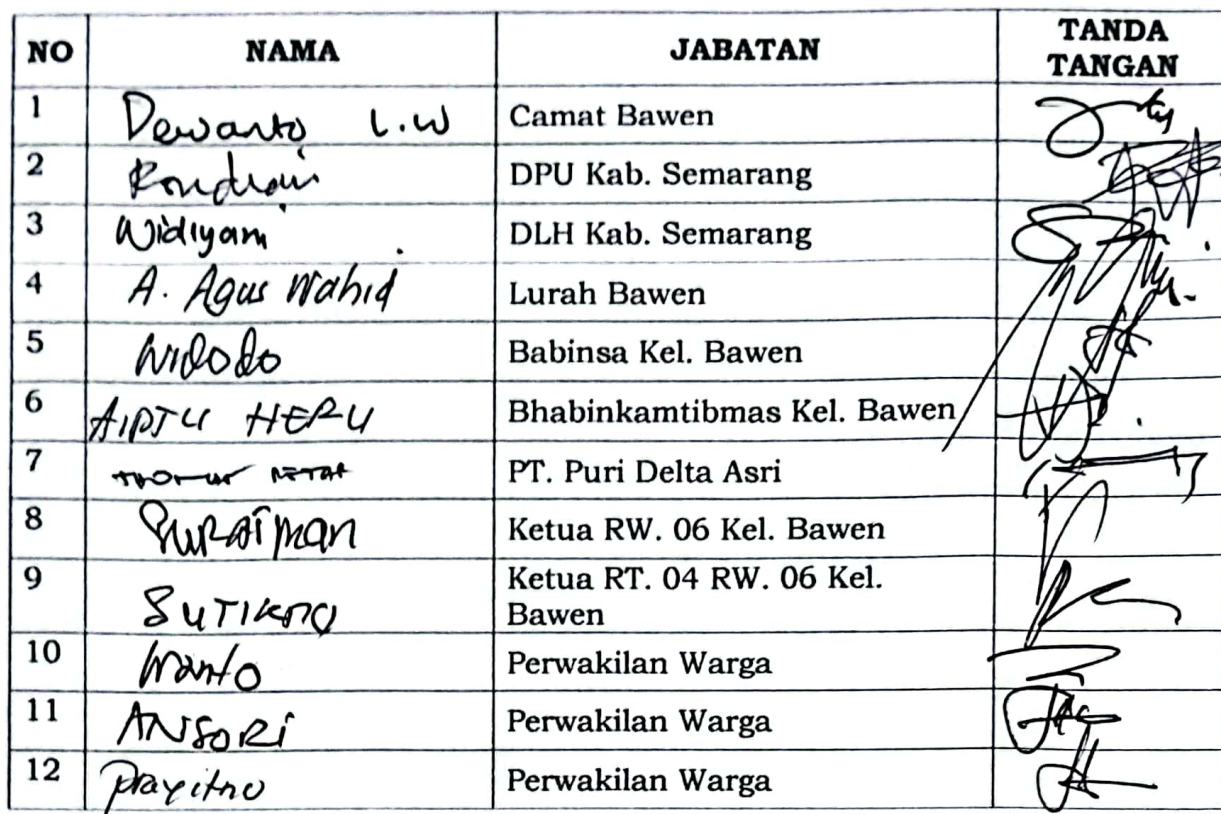 NO NAMA JABATAN TANDA
TANGAN
1 Dewanto L.W Camat Bawen
2 DPU Kab. Semarang
3 Widiyam DLH Kab. Semarang
4 A. Agus Wahid Lurah Bawen
5 Widodo Babinsa Kel. Bawen
6 AIPTU HERU Bhabinkamtibmas Kel. Bawen
7 PT. Puri Delta Asri
8 Ketua RW. 06 Kel. Bawen
9 SUTIKNO Ketua RT. 04 RW. 06 Kel.
Bawen
10 Wanto Perwakilan Warga
11 ANSORi Perwakilan Warga
12 Prayitno Perwakilan Warga